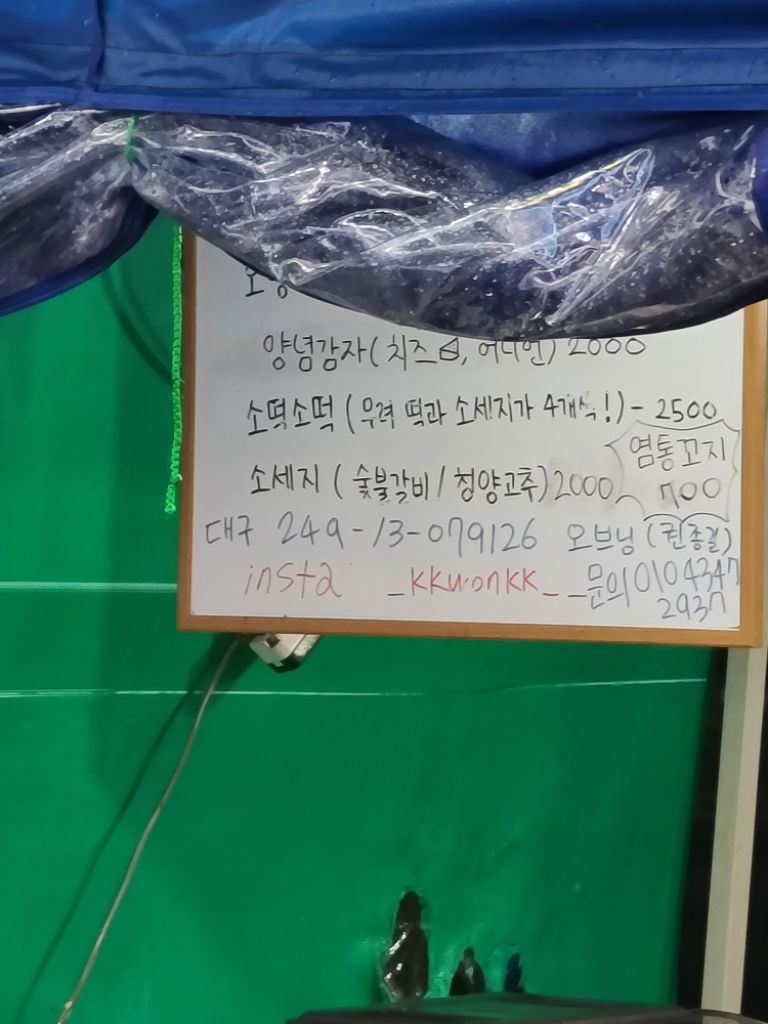 양념감자( 치즈맛, 어니언) 2000
소떡소떡 (무려 떡과 소세지가 4개씩!) - 2500
염통꼬지
700
소세지 ( 숯불갈비 / 청양고추) 2000
대구 249-13-079126 오브닝 (권종걸)
insta _kkwonkk__
문의 010 4347
2937